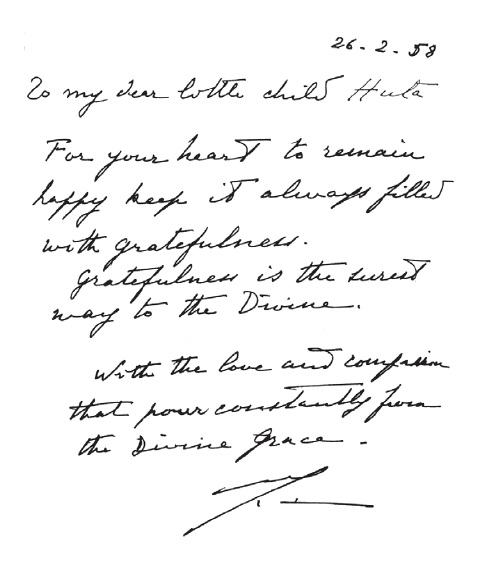 26-2-58
To my dear little child Huta
For your heart to remain
happy keep it always filled
with gratefulness.
Gratefulness is the surest
way to the Divine.
With the love and compassion
that pour constantly from
the Divine Grace -